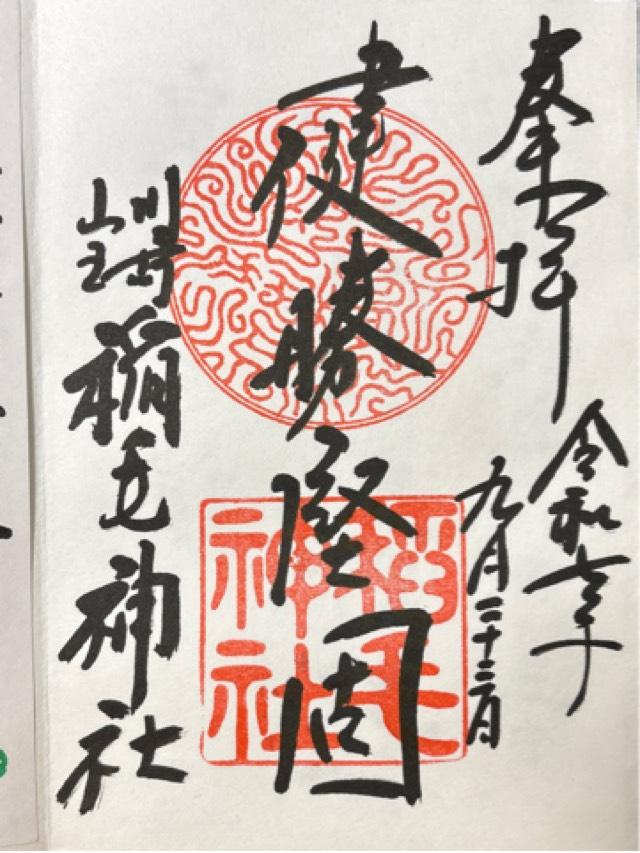 奉拝
令和七年
九月二十三日
健勝堅固
川崎
山王
稲毛神社
稲毛
神社